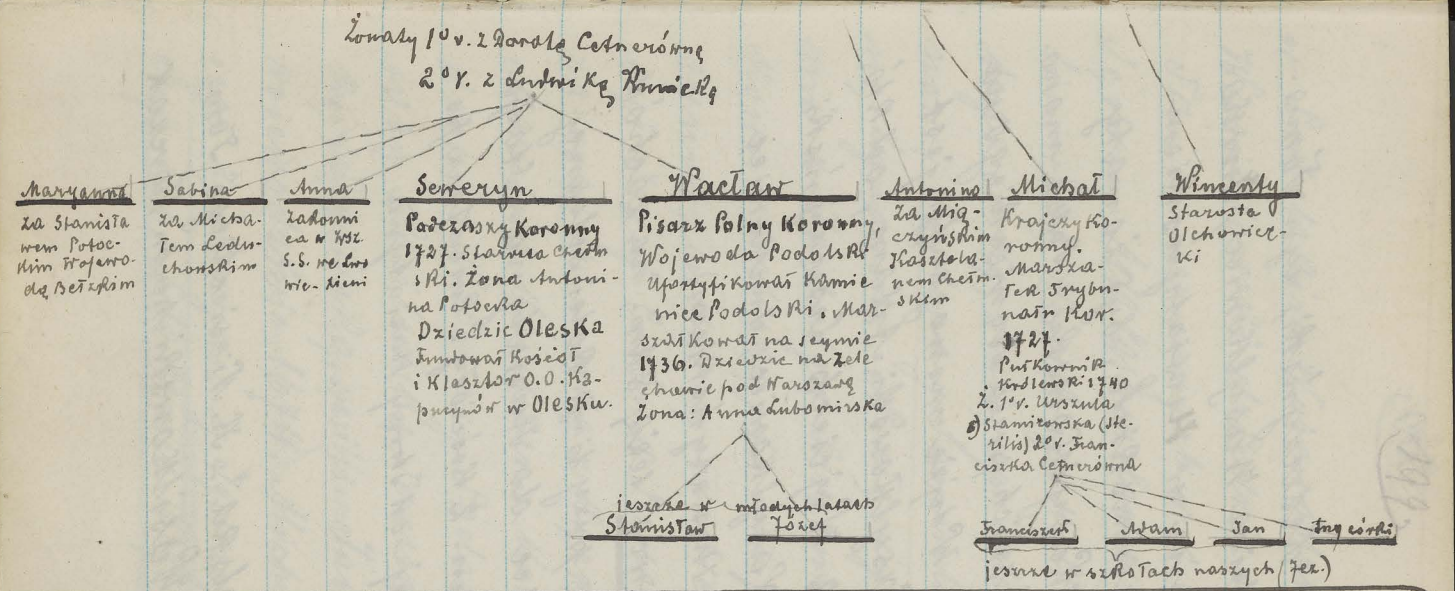 Żonaty 1º v. z Dorotą Cetnerówną
2º v. z Ludwiką
Maryanna
za Stanisła
wem Potoc-
kim Wojewo-
dą Bełzkim
Sabina
za Micha-
łem Ledu-
chowskim
Anna
Zakonni
ca w
S.S. we Lwo
wie.
Seweryn
Podczaszy Koronny
1727. Starosta Chełm
ski. Żona Antoni-
na Potocka
Dziedzic Oleska
Fundował Kościół
i Klasztor O.O. Ka-
pucynów w Olesku.
Wacław
Pisarz Polny Koronny,
Wojewoda Podolski
Ufortyfikował Kamie
niec Podolski. Mar-
szałkował na seymie
1736. Dziedzic na Żele
chowie pod Warszawą
Żona: Anna Lubomirska
Antonina
za Mią-
czyńskim
Kasztela-
nem Chełm-
skim
Michał
Krajczy Ko-
ronny.
Marsza-
łek Trybu-
nału Kor.
1727.
Pułkownik
Królewski 1740
Ż. 1º v. Urszula
Stamirowska (ste-
rilis) 2º v. Fran-
ciszka Cetnerówna
Wincenty
Starosta
Olchowiec-
ki
jeszcze w młodych latach
Stanisław Józef
Franciszek Adam Jan Trzy córki
jeszcze w szkołach naszych (Jez.)